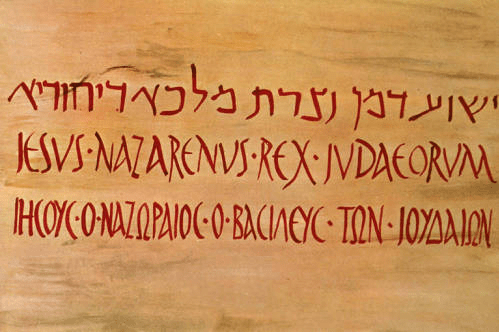 ישוע דמן נצרת מלכא דיהודיא
JESVS·NAZARENVS·REX·JVDAEORVM
ΙΗϹΟΥϹ·Ο·ΝΑΖΩΡΑΙΟϹ·Ο·ΒΑϹΙΛΕΥϹ·ΤΩΝ·ΙΟΥΔΑΙΩΝ